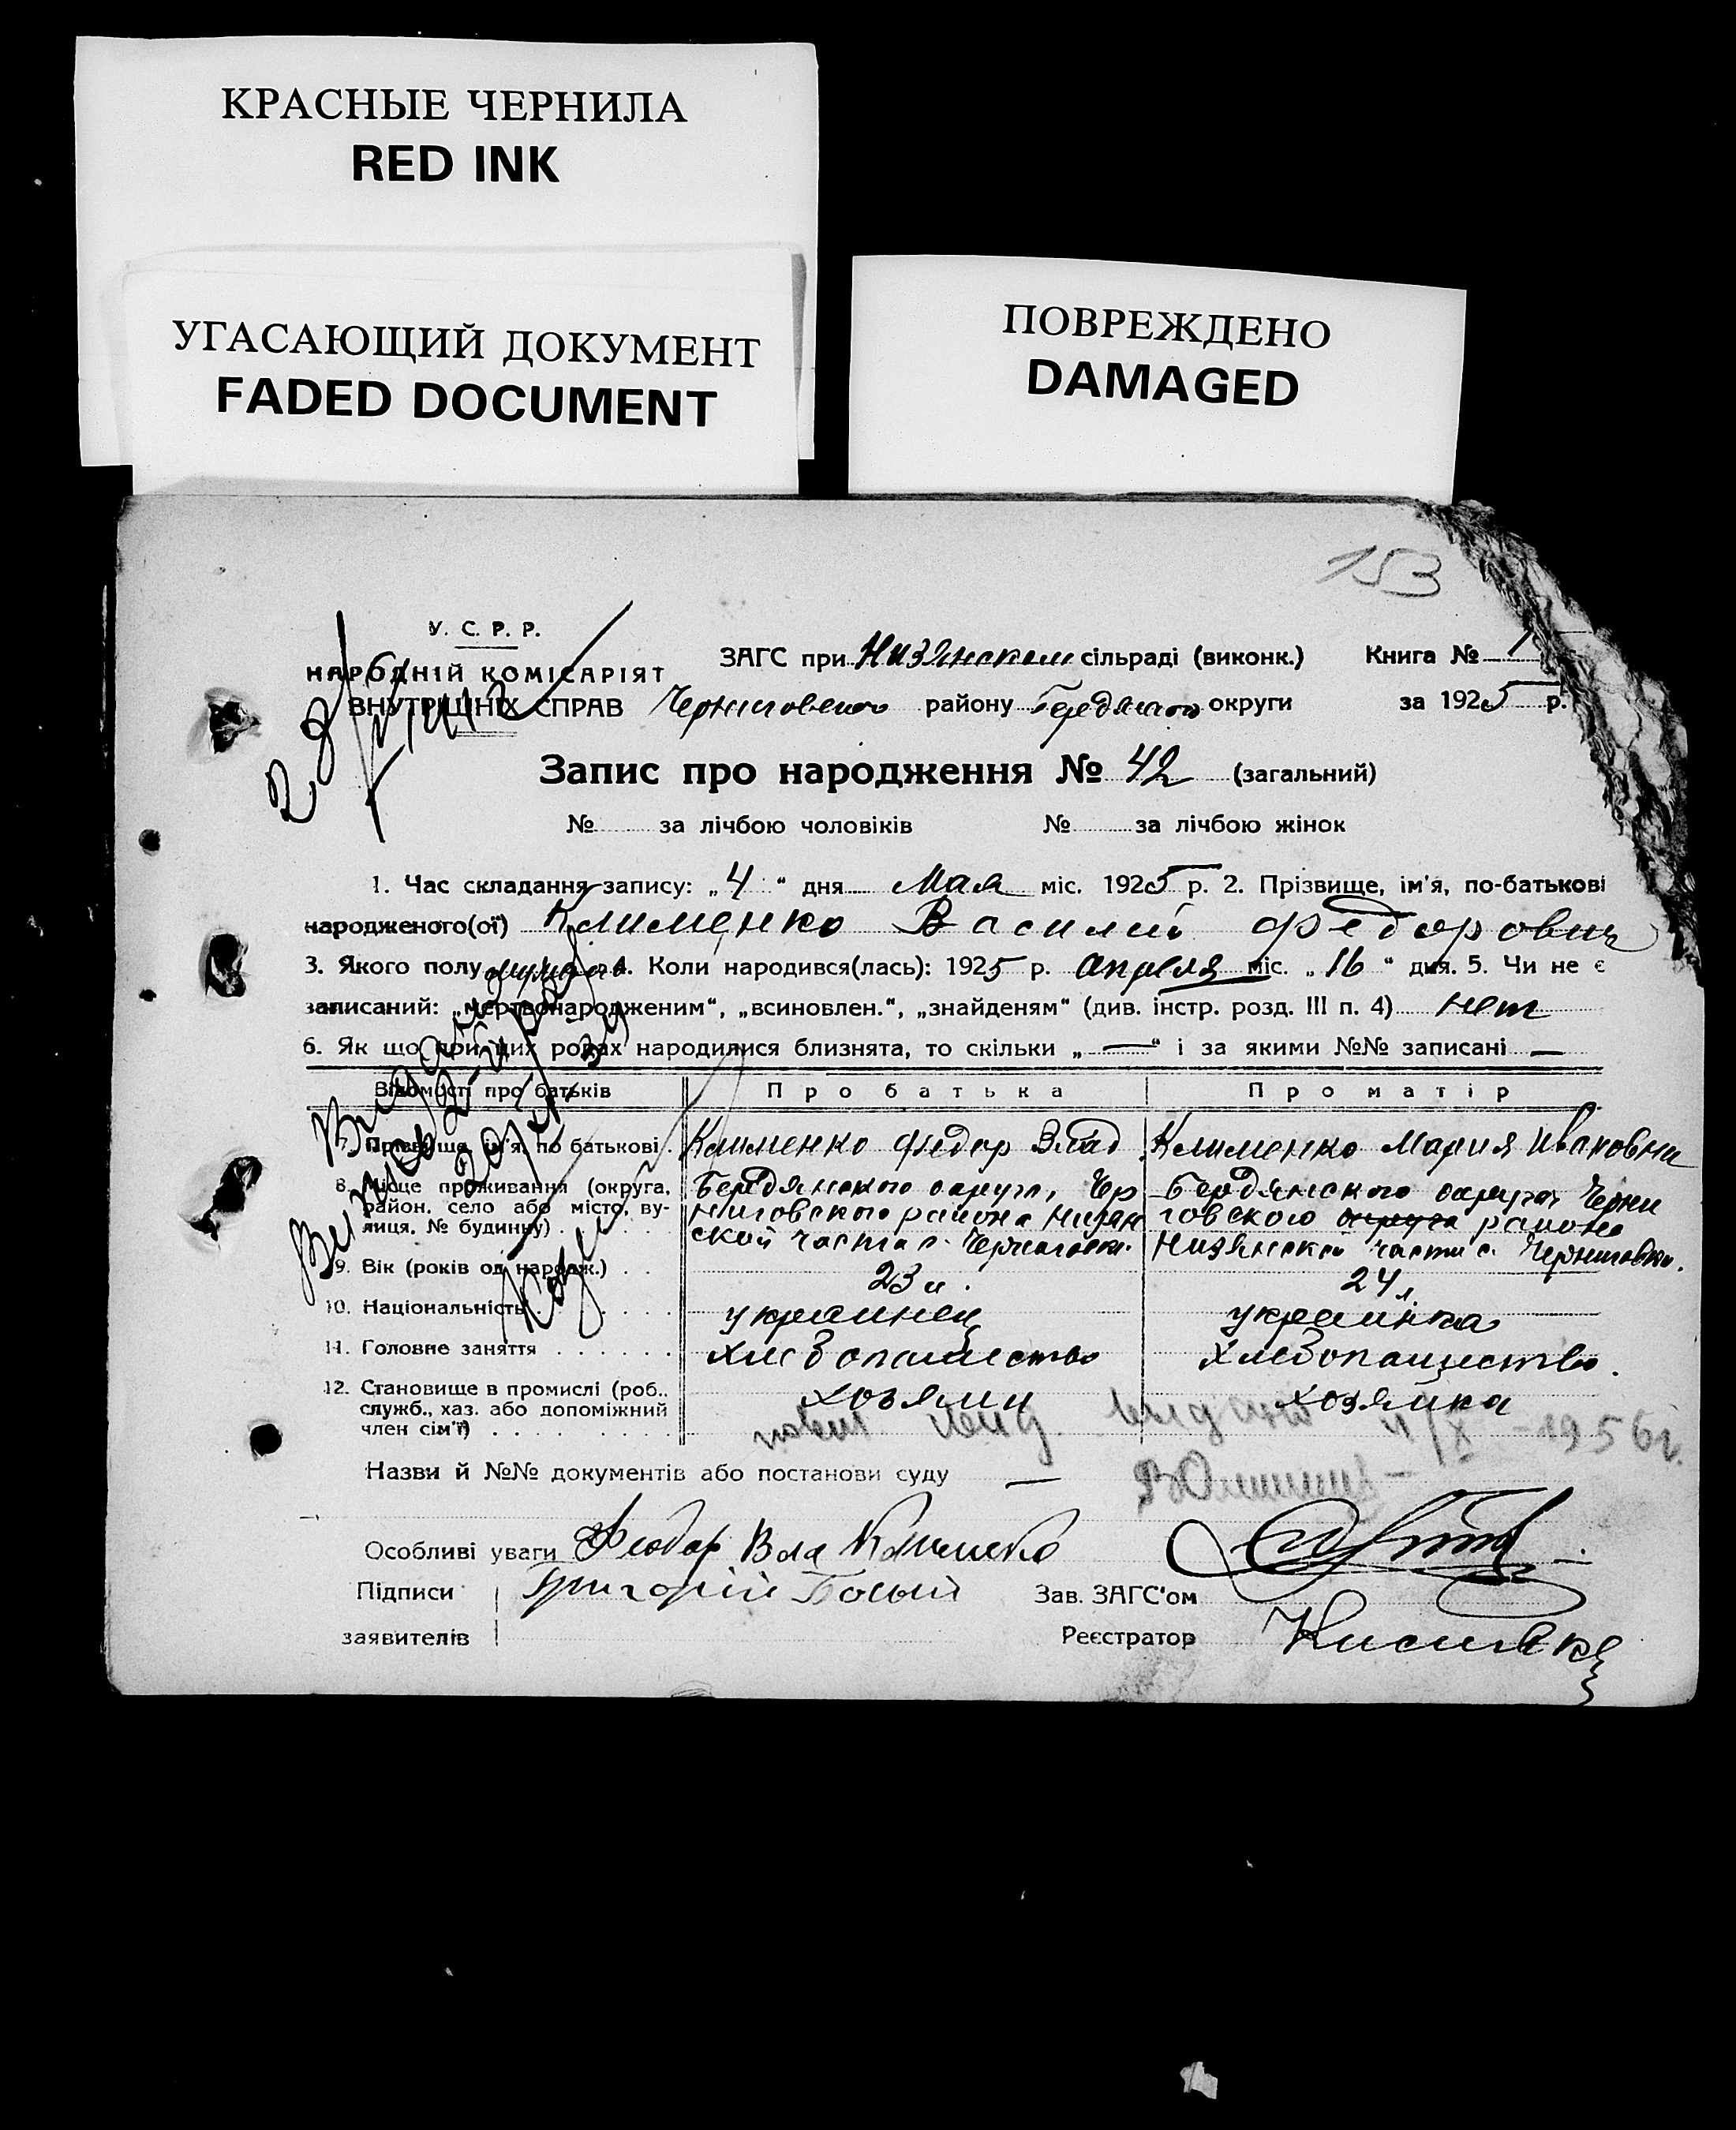 КРАСНЫЕ ЧЕРНИЛА
RED INK
УГАСАЮЩИЙ ДОКУМЕНТ
FADED DOCUMENT
ПОВРЕЖДЕНО
DAMAGED
153
У. С. Р. Р.
НАРОДНІЙ КОМІСАРІЯТ
ВНУТРІШНІХ СПРАВ
ЗАГС при Низянском сільраді (виконк.) Книга № 1
району округи за 1925 р.
Запис про народження № 42 (загальний)
№ за лічбою чоловіків № за лічбою жінок
1. Час складання запису: „4“ дня Мая міс. 1925 р. 2. Прізвище, ім'я, по-батькові
народженого(ої) Клименко Василий Федорович
3. Якого полу 4. Коли народився(лась): 1925 р. Апреля міс. „16“ дня. 5. Чи не є
записаний: „мертвонародженим“, „всиновлен.“, „знайденям“ (див. інстр. розд. III п. 4) нет
6. Як що при цих родах народилися близнята, то скільки „—“ і за якими №№ записані —
Відомості про батьків Про батька Про матір
7. Прізвище, ім'я, по батькові. Клименко Федор Влад. Клименко Мария Ивановна
8. Місце проживання (округа, район, село або місто, вулиця, № будинку)
Бердянского округа, Чер
ниговского района Низян
ской части с. Черниговк.
Бердянского округа Черни
говского округа района
Низянской части с. Черниговки.
9. Вік (років од народж.) 23 л. 24 л
10. Національність украинец украинка
11. Головне заняття хлебопашество хлебопашество.
12. Становище в промислі (роб., служб., хаз. або допоміжний член сім'ї) хозяин хозяйка
выдано 11/X - 1956г.
Назви й №№ документів або постанови суду —
Особливі уваги Федор Вла Клименко
Підписи Григорій
заявителів
Зав. ЗАГС'ом
Реєстратор